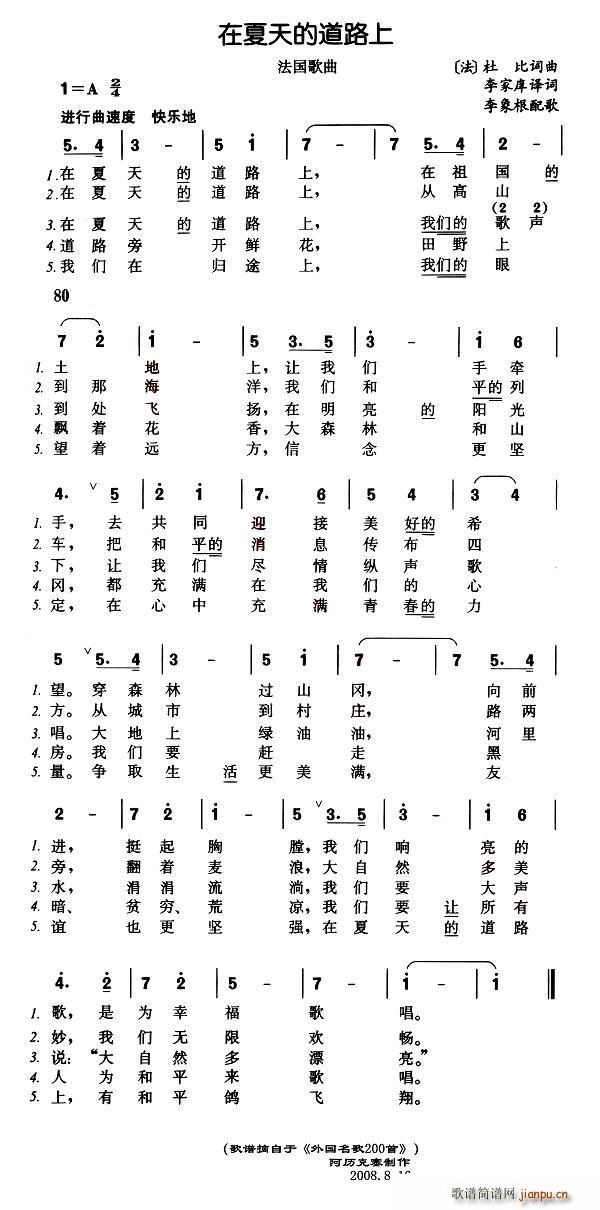 在夏天的道路上
法国歌曲
〔法〕杜 比词曲
1=A 2/4
李家庠译词
李象根配歌
进行曲速度 快乐地
5. 4 | 3 - | 5 1 | 7 - | 7 5. 4 | 2 - |
1. 在夏天的道路上, 在祖国的
2. 在夏天的道路上, 从高山
(2 2)
3. 在夏天的道路上, 我们的歌声
4. 道路旁开鲜花, 田野上
5. 我们在归途上, 我们的眼
80
7 2 | 1 - | 5 3. 5 | 3 - | 1 6 |
1. 土地上,让我们手牵
2. 到那海洋,我们和平的列
3. 到处飞扬,在明亮的阳光
4. 飘着花香,大森林和山
5. 望着远方,信念更坚
4. ∨ 5 | 2 1 | 7. 6 | 5 4 | 3 4 |
1. 手, 去共同迎接美好的希
2. 车, 把和平的消息传布四
3. 下, 让我们尽情纵声歌
4. 冈, 都充满在我们的心
5. 定, 在心中充满青春的力
5 ∨ 5. 4 | 3 - | 5 1 | 7 - | 7 5. 4 |
1. 望。穿森林过山冈, 向前
2. 方。从城市到村庄, 路两
3. 唱。大地上绿油油, 河里
4. 房。我们要赶走黑
5. 量。争取生活更美满, 友
2 - | 7 2 | 1 2 | 5 ∨ 3. 5 | 3 - | 1 6 |
1. 进, 挺起胸膛,我们响亮的
2. 旁, 翻着麦浪,大自然多美
3. 水, 涓涓流淌,我们要大声
4. 暗、贫穷、荒凉,我们要让所有
5. 谊也更坚强,在夏天的道路
4. 2 | 7 2 | 5 - | 7 - | 1 - | 1 ‖
1. 歌, 是为幸福歌唱。
2. 妙, 我们无限欢畅。
3. 说:“大自然多漂亮。”
4. 人为和平来歌唱。
5. 上, 有和平鸽飞翔。
(歌谱摘自于《外国名歌200首》)
阿历克塞制作
2008.8
歌谱简谱网
jianpu.cn